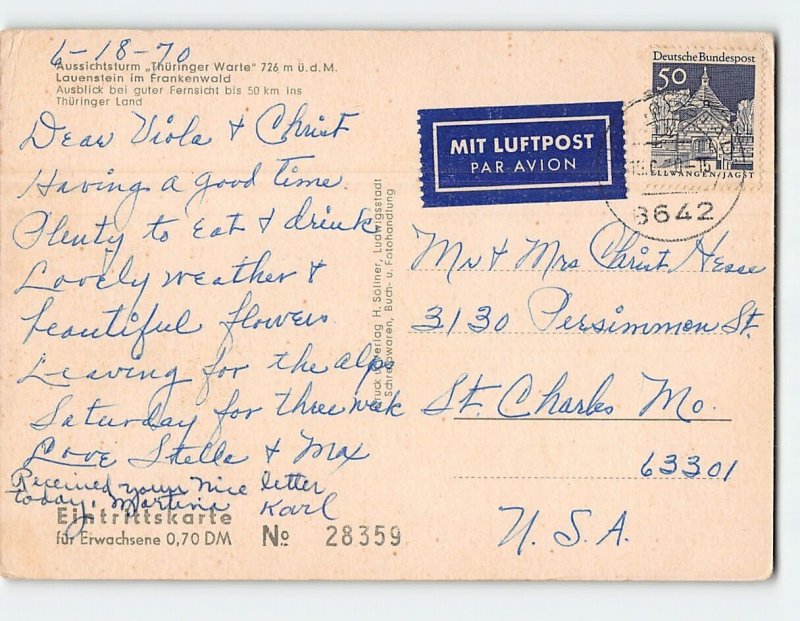 6-18-70
Aussichtsturm „Thüringer Warte" 726 m ü. d. M.
Lauenstein im Frankenwald
Ausblick bei guter Fernsicht bis 50 km ins
Thüringer Land
Dear Viola + Christ
Having a good time.
Plenty to eat & drink
Lovely weather &
beautiful flowers
Leaving for the alps
Saturday for three week
Love Stella + Max
Received your nice letter
today. Martina Karl
Eintrittskarte
für Erwachsene 0,70 DM No 28359
Druck u. Verlag H. Söllner, Ludwigsstadt
Schreibwaren, Buch- u. Fotohandlung
MIT LUFTPOST
PAR AVION
Deutsche Bundespost
50
ELLWANGEN/JAGST
8642
Mr & Mrs Christ Hesse
3130 Persimmon St.
St. Charles Mo.
63301
U. S. A.